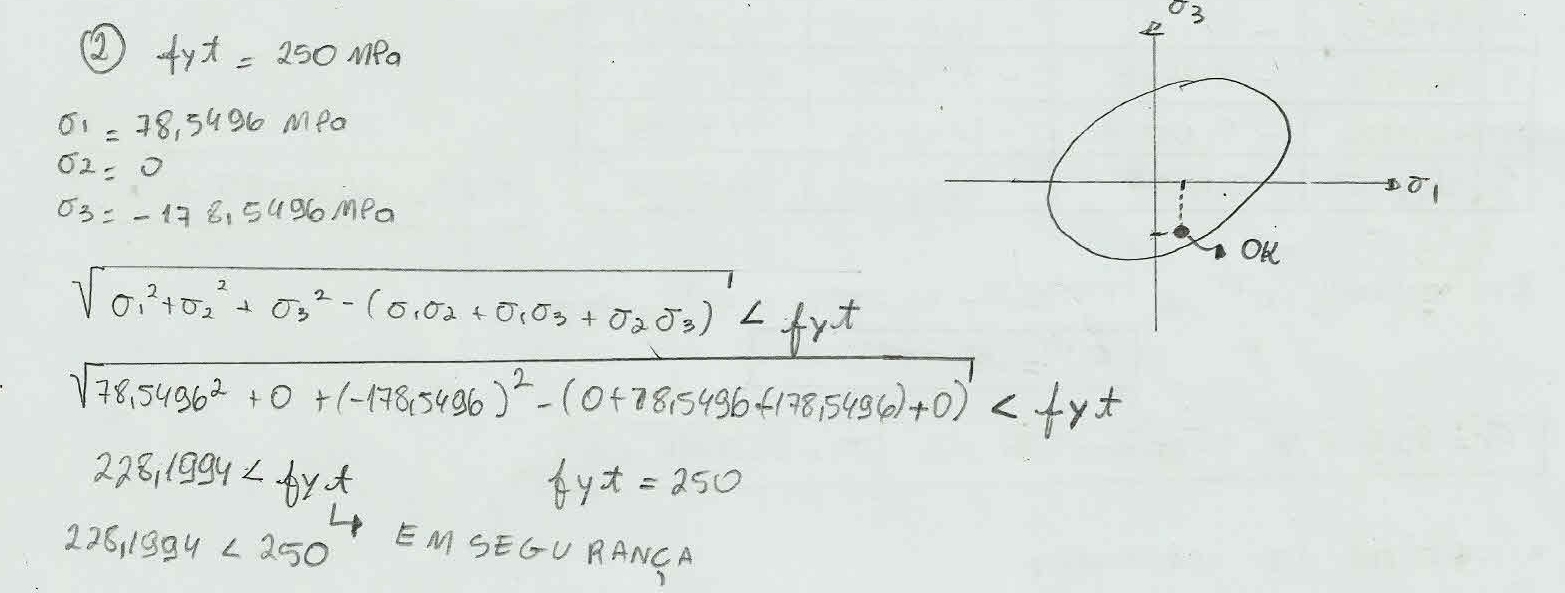 ② fyt = 250 MPa
σ1 = 78,5496 MPa
σ2 = 0
σ3 = -178,5496 MPa
√(σ1² + σ2² + σ3² - (σ1σ2 + σ1σ3 + σ2σ3)) < fyt
√(78,5496² + 0 + (-178,5496)² - (0+78,5496·(-178,5496)+0)) < fyt
228,1994 < fyt
fyt = 250
228,1994 < 250 ↳ EM SEGURANÇA
σ3
σ1
OK